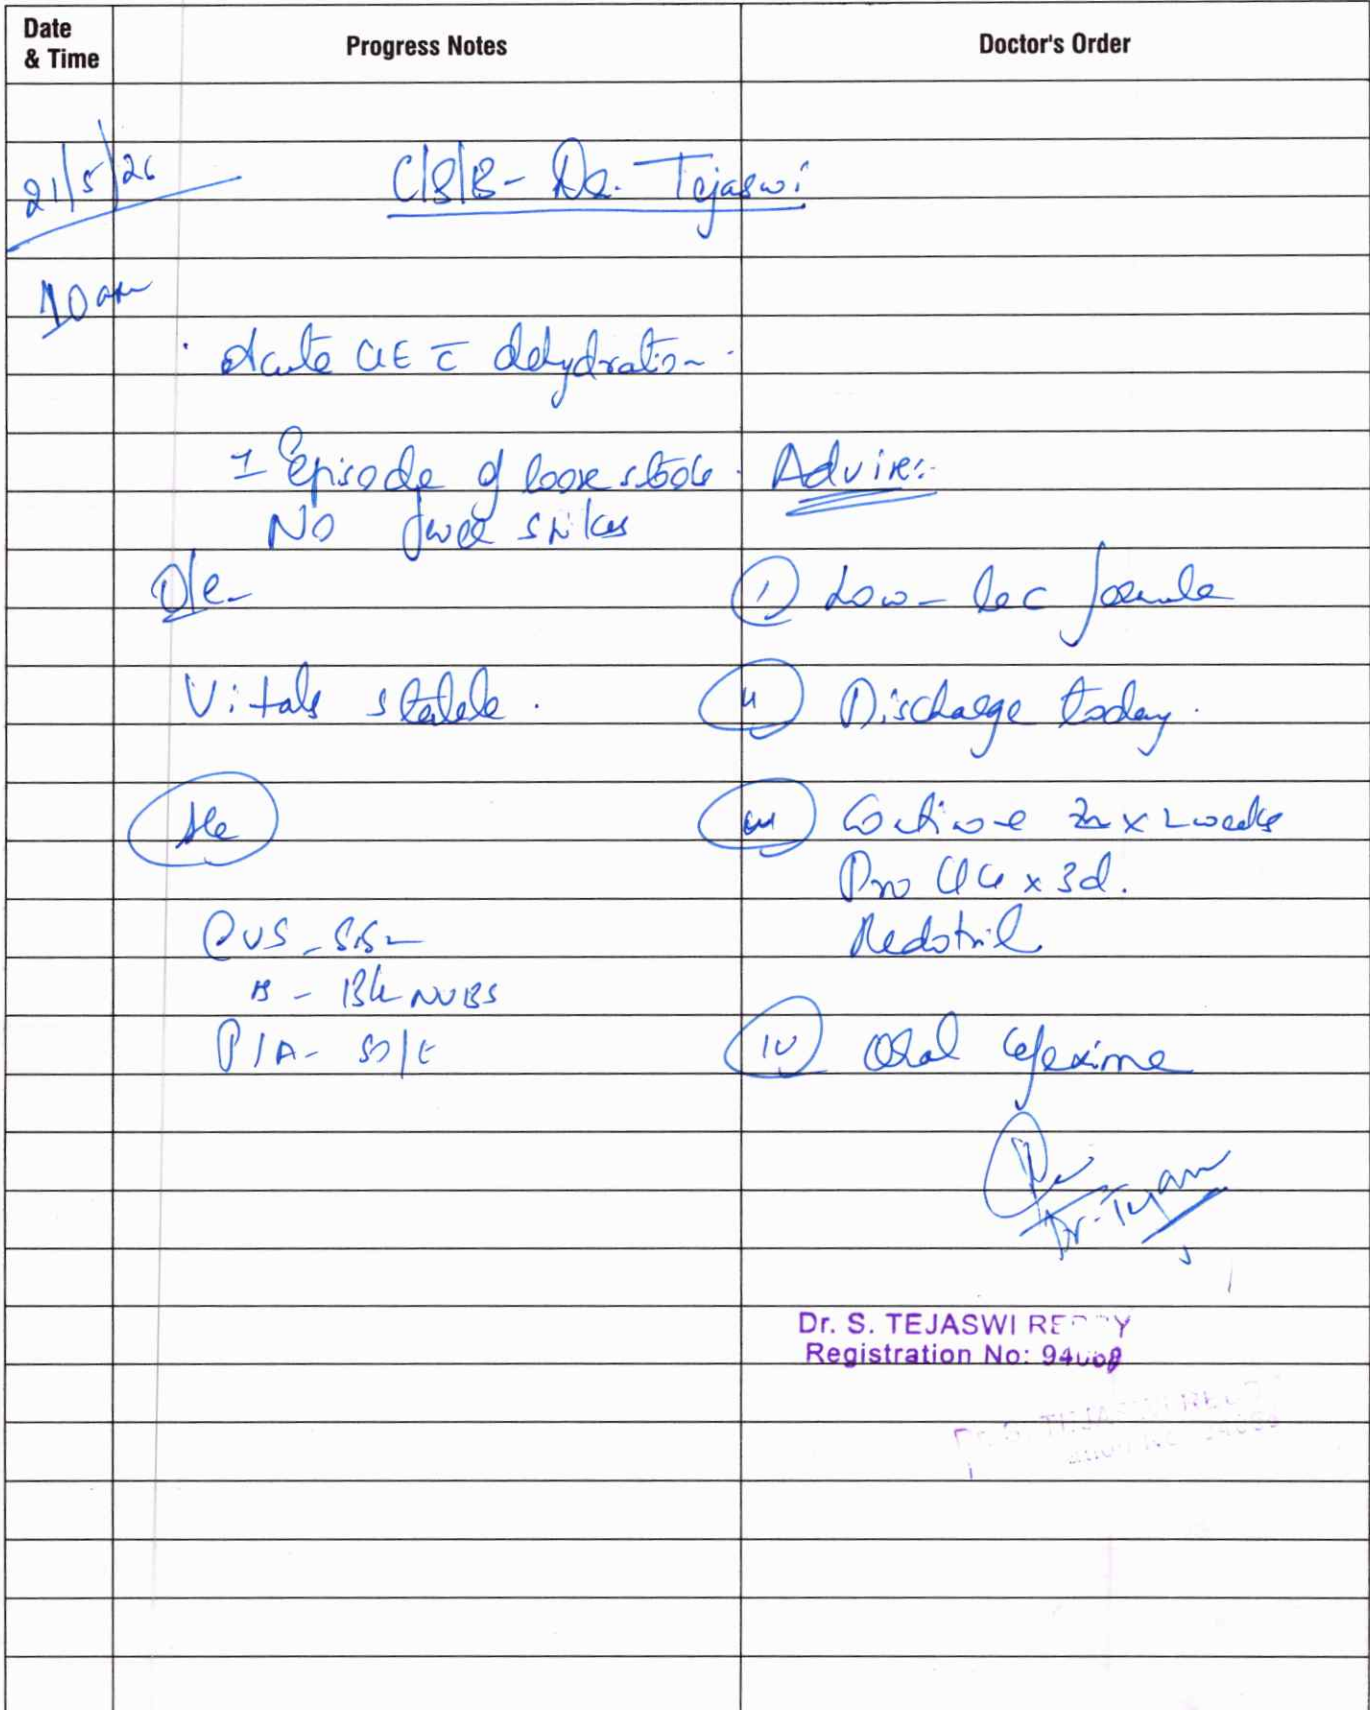 Date & Time
Progress Notes
Doctor's Order
21/5/26
C/S/B - Dr. Tejaswi
10 am
Acute GE c̄ dehydration.
1 Episode of loose stools.
No fever spikes
Advise:
O/e-
① Low-lac formula
Vitals stable.
ii Discharge today.
S/e
iii Continue Zn x 2 weeks
Pro x 3d.
CVS - S1S2
Redotril
- NVBS
P/A - soft
iv Oral Cefixime
Dr. S. TEJASWI
Registration No: